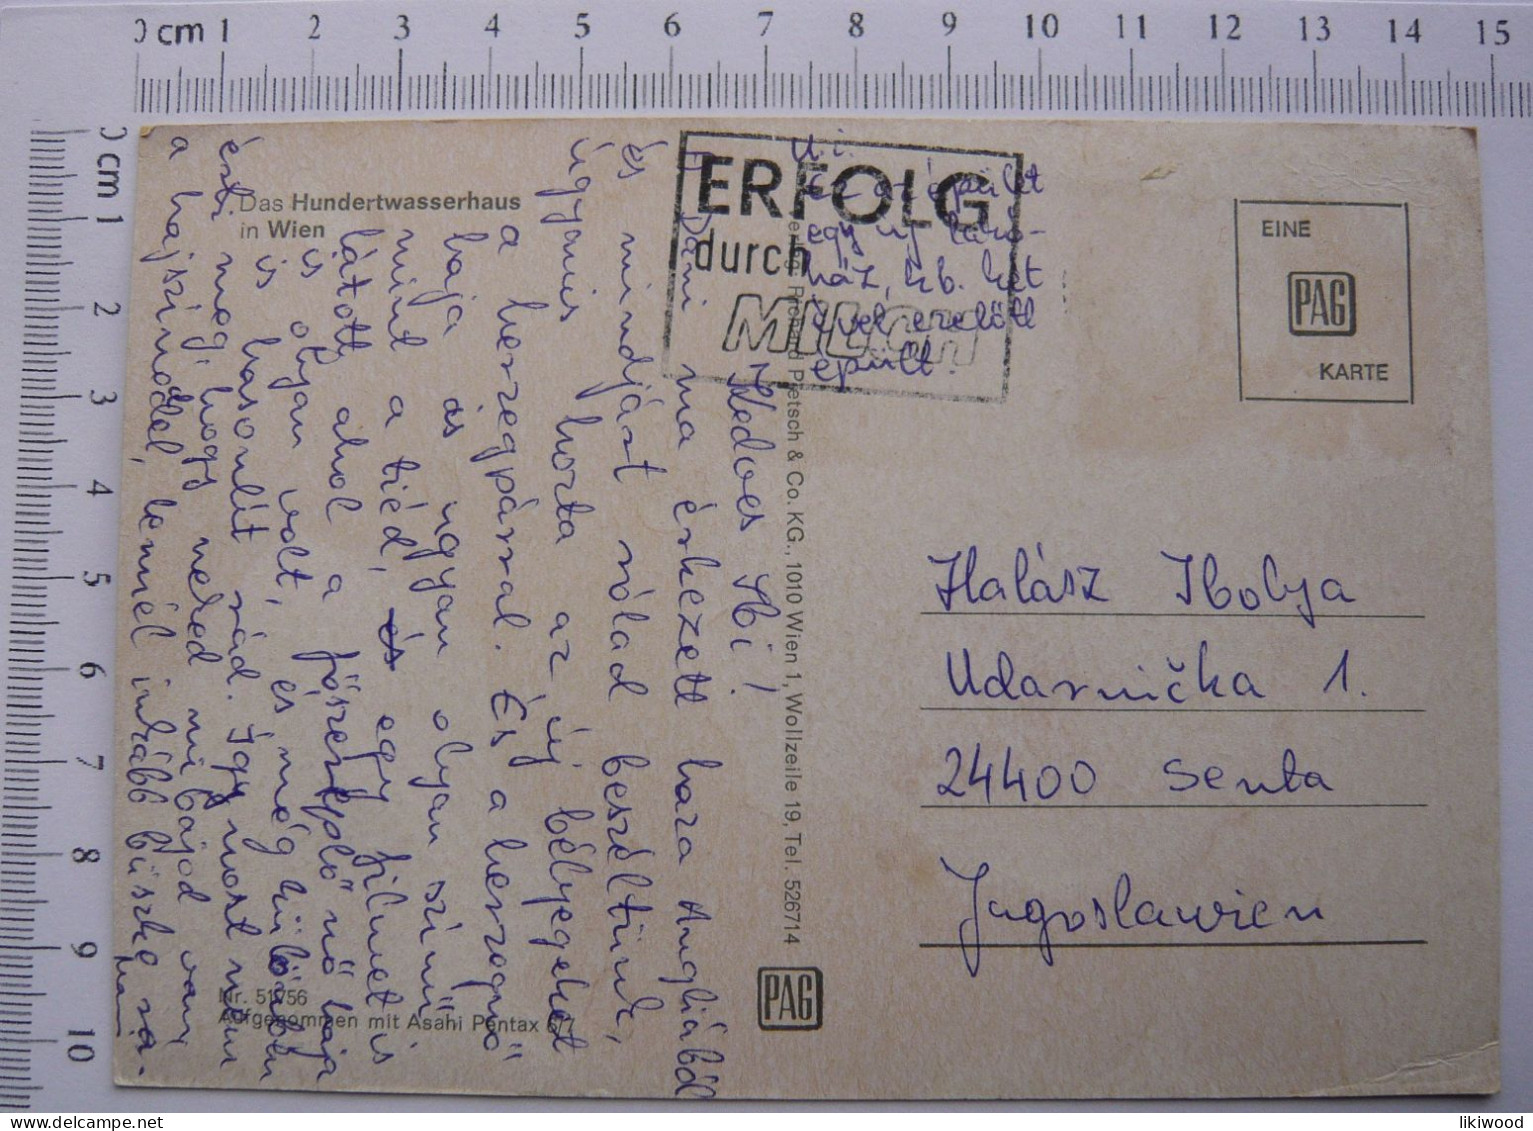 0 cm 1 2 3 4 5 6 7 8 9 10 11 12 13 14 15
0 cm 1 2 3 4 5 6 7 8 9 10
Das Hundertwasserhaus
in Wien
Kedves Ibi!
D. Dani ma érkezett haza Angliából
és mindjárt rólad beszéltünk,
úgyanis hozta az új bélyegeket
a hercegpárral. És a hercegnő
haja is ugyan olyan színű
mint a tiéd, és egy filmet is
látott ahol a főszereplő nő haja
is olyan volt, és még különben
is hasonlít rád. Így most nem
ért. meg, hogy neked mi bajod van
a hajszínoddel, lennél inkább büszke rá-
U.i.
Ez az épület
egy új lakó-
ház, kb. két
évvel ezelőtt
épült.
ERFOLG
durch
Verlag Richard Pietsch & Co. KG., 1010 Wien 1, Wollzeile 19, Tel. 526714
PAG
Nr. 51756
Aufgenommen mit Asahi Pentax 6/7
EINE
PAG
KARTE
Halász Ibolya
Udarnička 1.
24400 Senta
Jugoslawien
likiwood